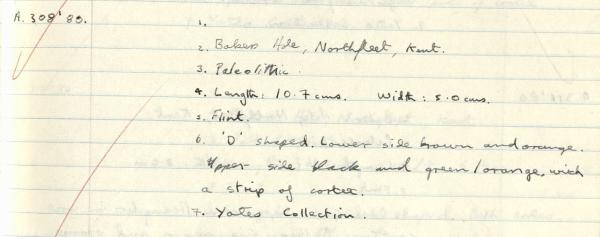 A.308'80. 1.
2. Bakers Hole, Northfleet, Kent.
3. Paleolithic.
4. Length: 10.7cms. Width: 5.0cms.
5. Flint.
6. 'D' shaped. Lower side brown and orange.
Upper side black and green/orange, with
a strip of cortex.
7. Yates Collection.